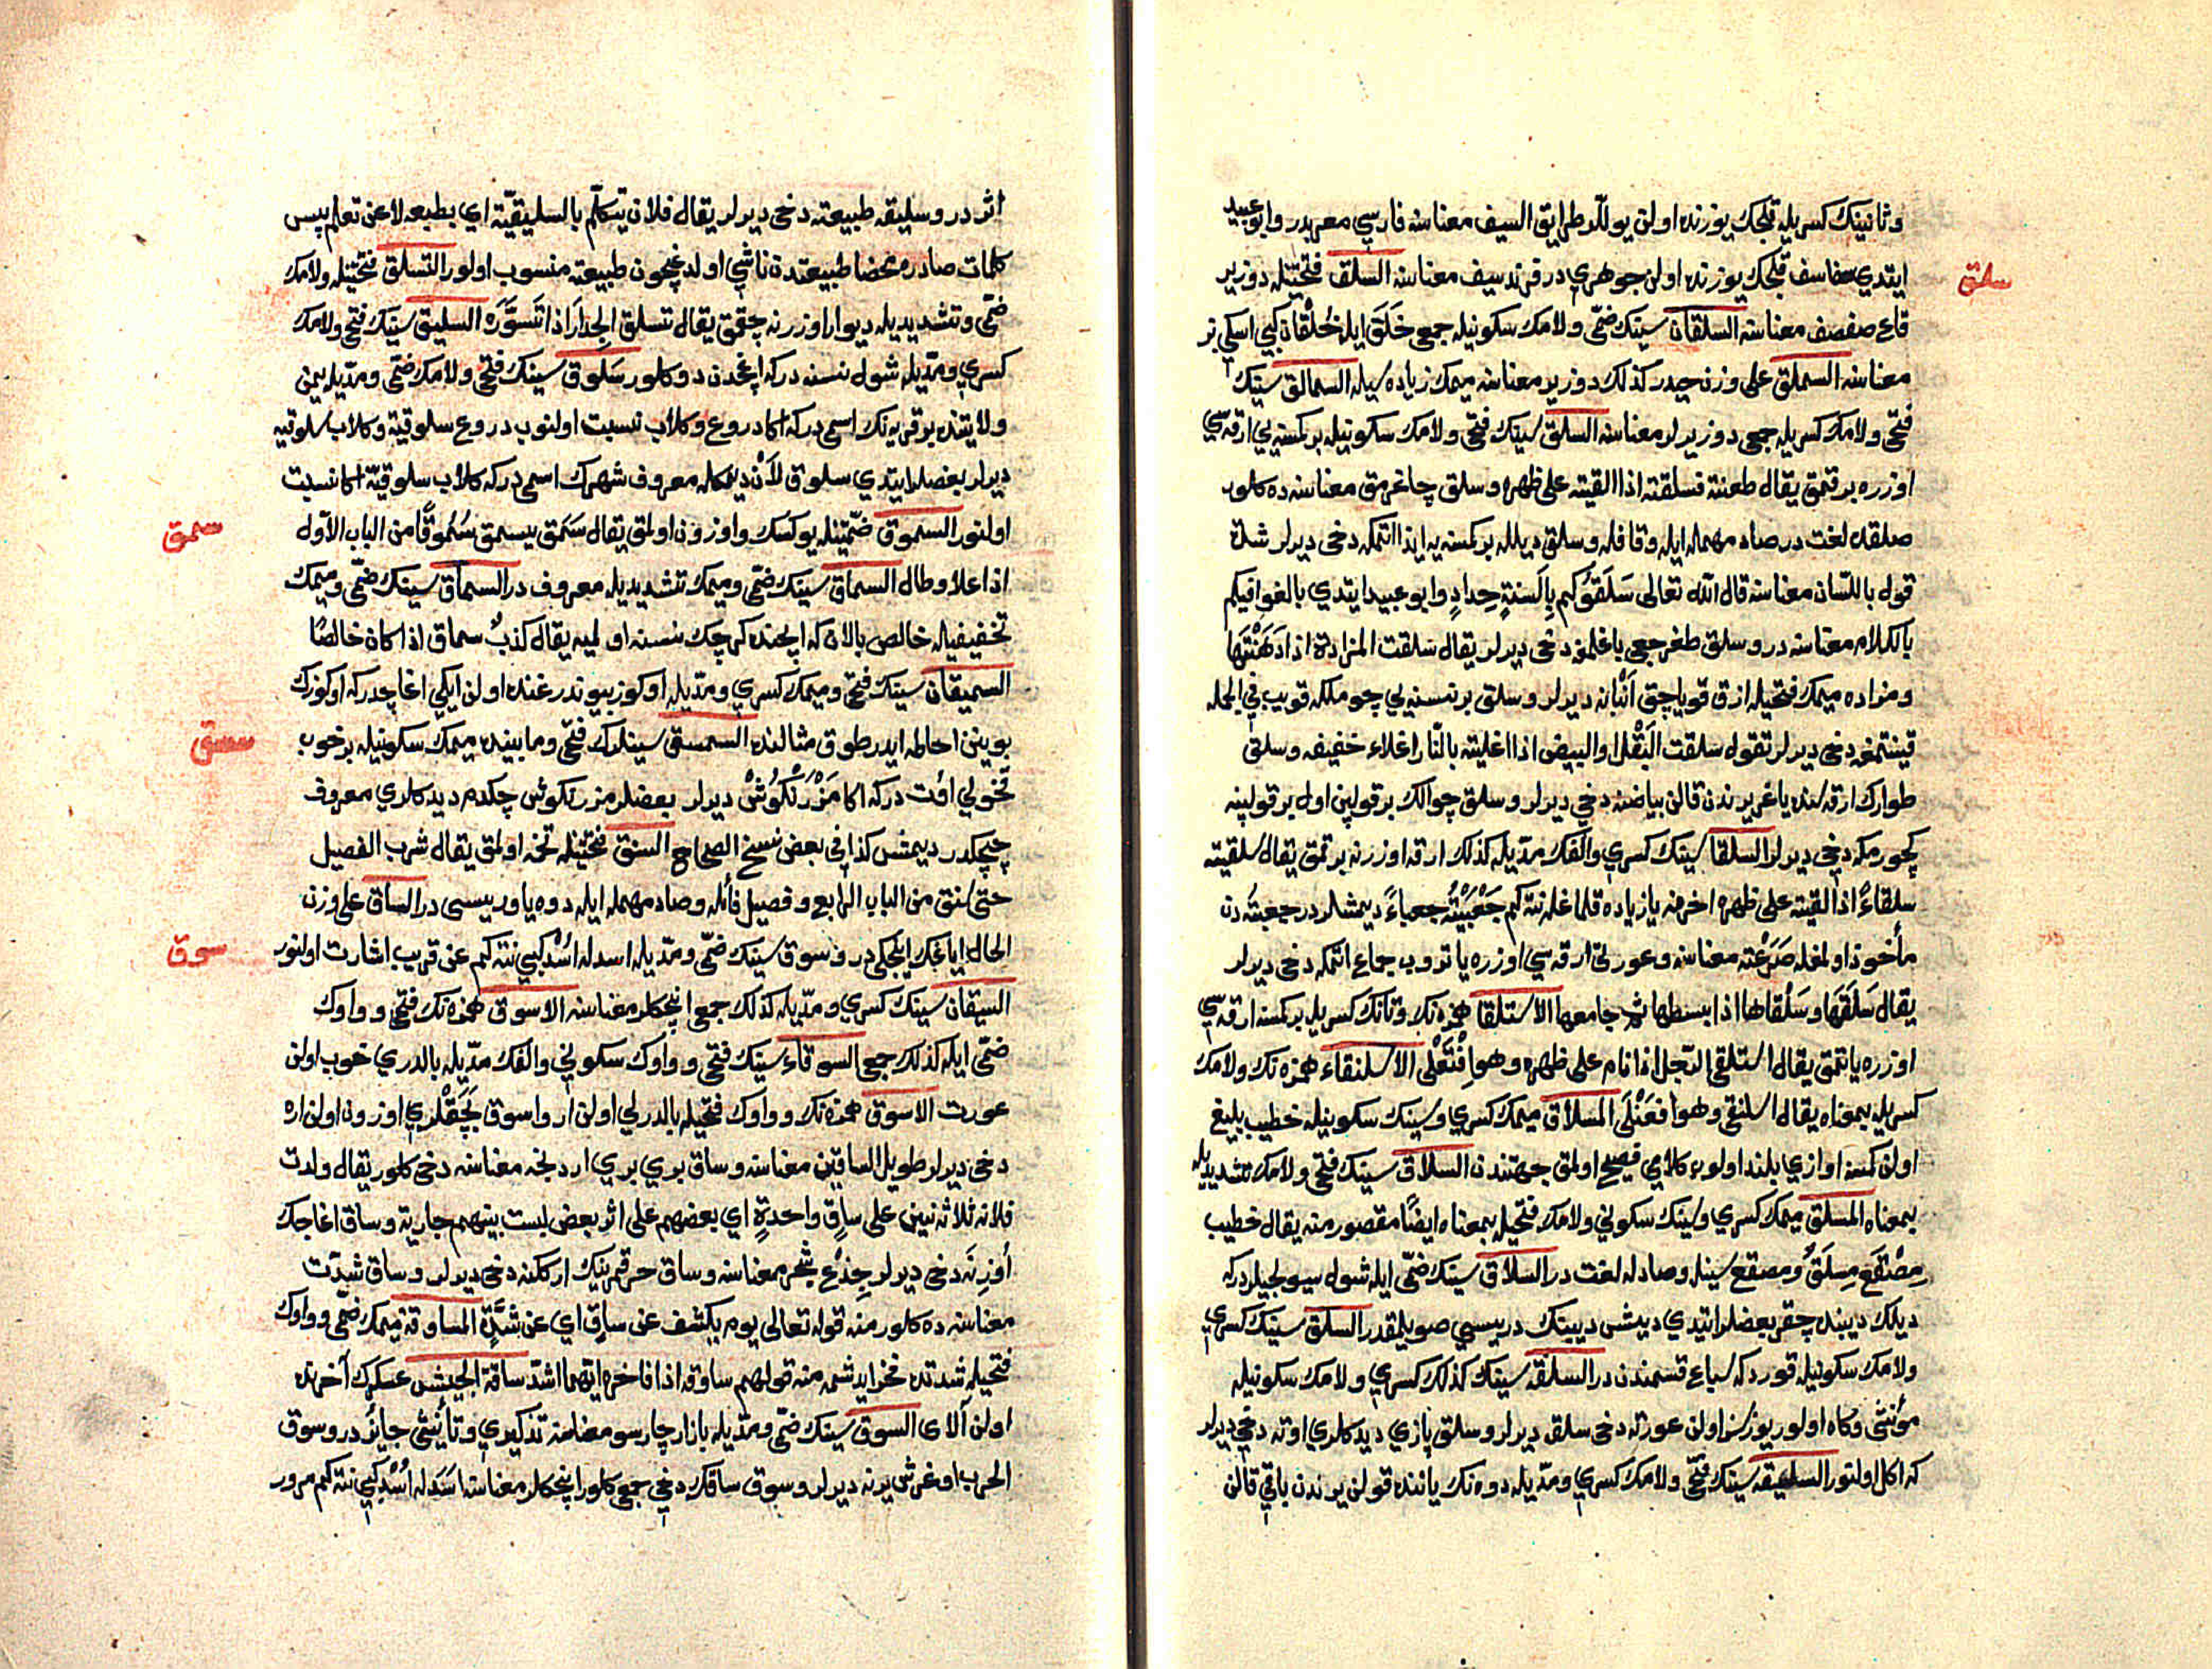 وثانينك كسريله قلجك يوزنده اولن يوللر طرايق السيف معناسنه فارسي معربدر وابو عبيد
سلق
ايتدي سفاسف قلجك يوزنده اولن جوهري در فرند سيف معناسنه السلق فتحتيله دوزير
قاع صفصف معناسنه السلقان سينك ضمي ولامك سكونيله جمعي خلق ايله خلقان كبي اسكي نر
معناسنه السملق على وزن حيدر كذلك دوزير معناسنه ميمك زياده سيله السمالق سينك
فتحي ولامك كسريله جمعي دوزيرلر معناسنه السلق سينك فتحي ولامك سكونيله بر كمسنه يي ارقه سي
اوزره برقمق يقال طعنته فسلقته اذا القيته على ظهره وسلق چاغرمق معناسنه ده كلور
صلقده لغت در صاد مهمله ايله وقافله وسلق ديلله بر كمسنه يه ايذا اتمكه دخي ديرلر شدة
قول باللسان معناسنه قال الله تعالى سَلَقُوكم بِاَلسنةٍ حِدادٍ وابو عبيد ايتدي بالغوا فيكم
بالكلام معناسنه در وسلق طغرجغي ياغلمق دخي ديرلر يقال سلقت المزادة اذا دَهَنْتَها
ومزاده ميمك فتحيله ازق قوياجق آنبانه ديرلر وسلق بر نسنه يي چوملكه قويب في الجمله
قينتمغه دخي ديرلر تقول سلقت البَقْل والبيض اذا اغليته بالنار اغلاء خفيفه وسلق
طوارك ارقه سنده ياغر يرندن قالن بياضنه دخي ديرلر وسلق چوالك بر قولپن اول بر قولپنه
كچورمكه دخي ديرلر السلقا سينك كسري والفك مديله كذلك ارقه اوزرنه برقمق يقال سلقيته
سلقاءً اذا القيته على ظهره اخرنه يا زياده قلماغله نته كم جَعْبَيْتُه جعباءً ديمشلردر جعبته دن
مأخوذ اولمغله صَرَعْته معناسنه وعورتي ارقه سي اوزره ياتروب جماع اتمكه دخي ديرلر
يقال سَلَقَها وسَلْقاها اذا بسطها ثم جامعها الاستلقا همزه نك وتانك كسريله بر كمسنه ارقه سي
اوزره ياتمق يقال استلقى الرجل اذا نام على ظهره وهو اِفْتَعْلى الاسلنقاء همزه نك ولامك
كسريله بمعناه يقال اسلنقى وهو افعَنْلَى المسلاق ميمك كسري وسينك سكونيله خطيب بليغ
اولن كمسنه اوازي بلند اولوب كلامي فصيح اولمق جهتندن السلاق سينك فتحي ولامك تشديديله
بمعناه المسلق ميمك كسري وسينك سكوني ولامك فتحيله بمعناه ايضًا مقصور منه يقال خطيب
مِصْقَع مِسلَقٌ ومصقع سينله وصادله لغت در السلاق سينك ضمي ايله شول سيولجيلردركه
ديلك ديبنده چقر بعضلر ايتدي ديشى ديبينك دريسي صويلمقدر السلق سينك كسري
ولامك سكونيله قوردكه سباع قسمندن در السلقه سينك كذلك كسري ولامك سكونيله
مؤنثي وكاه اولور يوزسز اولن عورته دخي سلقه ديرلر وسلق پازي ديدكلري اوته دخي ديرلر
كه اكل اولنور السليقه سينك فتحي ولامك كسري ومديله دوه نك ياننده قولن يرندن باقي قالن
اثر در وسليقه طبيعته دخي ديرلر يقال فلان يتكلّم بالسليقيّة اي بطبعه لا عن تعلم پس
كلمات صادره محضا طبيعتدن ناشي اولدغيچون طبيعته منسوب اولور التسلق فتحتيله ولامك
ضمّي وتشديديله ديوار اوزرنه چقمق يقال تسلق الجدارَ اذا تَسَوَّرَه السليق سينك فتحي ولامك
كسري ومدّيله شول نسنه دركه اغجدن دوكلور سَلوق سينك فتحي ولامك ضمّي ومدّيله يمن
ولايتنده بر قريه نك اسميدركه اكا دروع وكلاب نسبت اولنوب دروع سلوقية وكلاب سلوقيه
ديرلر بعضلر ايتدي سلوق لاَن ديمكله معروف شهرك اسميدركه كلاب سلوقيّة اكا نسبت
سمق
اولنور السموق ضمّتيله يوكسك واوزون اولمق يقال سَمَق يسمق سُمُوقًا من الباب الاول
اذا علا وطال السماق سينك ضمّي وميمك تشديديله معروف در السماق سينك ضمّي وميمك
تخفيفيله خالص يالان كه ايچنده كرچك نسنه اولميه يقال كذبٌ سماق اذا كان خالصًا
السميقان سينك فتحي وميمك كسري ومديله اوكوز بيوندرغنده اولن ايكي اغاچدركه اوكوزك
سمسق
بوينن احاطه ايدر طوق مثالنده السمسق سينلرك فتحي ومابينده ميمك سكونيله بر خوب
قخولي اوت دركه اكا مَرْزَنْكُوش ديرلر بعضلر مرزنكوش چكدم ديدكلري معروف
چيچكدر ديمشر كذا في بعض نسخ الصحاح السنق فتحتيله تخمه اولمق يقال شرب الفصيل
حتى سنق من الباب الرابع وفصيل فائله وصاد مهمله ايله دوه ياوريسى در الساق على وزن
سوق
الحال اياغك اينجكي در سوق سينك ضمّي ومدّيله اسد له اُسْدٌ كبي نته كم عن قريب اشارت اولنور
السيقان سينك كسري ومدّيله كذلك جمعي اينجكلر معناسنه الاسوق همزه نك فتحي وواوك
ضمّي ايله كذلك جمعي السوقاء سينك فتحي وواوك سكوني والفك مدّيله بالدري خوب اولن
عورت الاسوق همزه نك وواوك فتحيله بالدرلي اولن ار واسوق بَچَقْلري اوزون اولن اره
دخي ديرلر طويل الساقين معناسنه وساق بري بري اردنجه معناسنه دخي كلور يقال ولدت
فلانه ثلاثة بنين على ساقٍ واحدةٍ اي بعضهم على اثر بعض ليست بينهم جارية وساق اغاجك
اُوزنه دخي ديرلر جِذْع شجر معناسنه وساق حر قمرينك ارككنه دخي ديرلر وساق شدّت
معناسنه ده كلور منه قوله تعالى يوم يكشف عن ساقٍ اي عن شدّةٍ المساوقه ميمك ضمّي وواوك
فتحيله شدتده فخر ايدشمه منه قولهم ساوقه اذا فاخره ايهما اشدّ ساقة الجيش عسكرك آخرنده
اولن آلاى السوق سينك ضمّي ومدّيله بازار چارسو معناسنه تذكيري وتأنيثى جايز در وسوق
الحرب اوغرش يرنه ديرلر وسوق ساقك دخي جمعي كلور اينجكلر معناسنه اسد له اُسْد كبي نته كم مرور